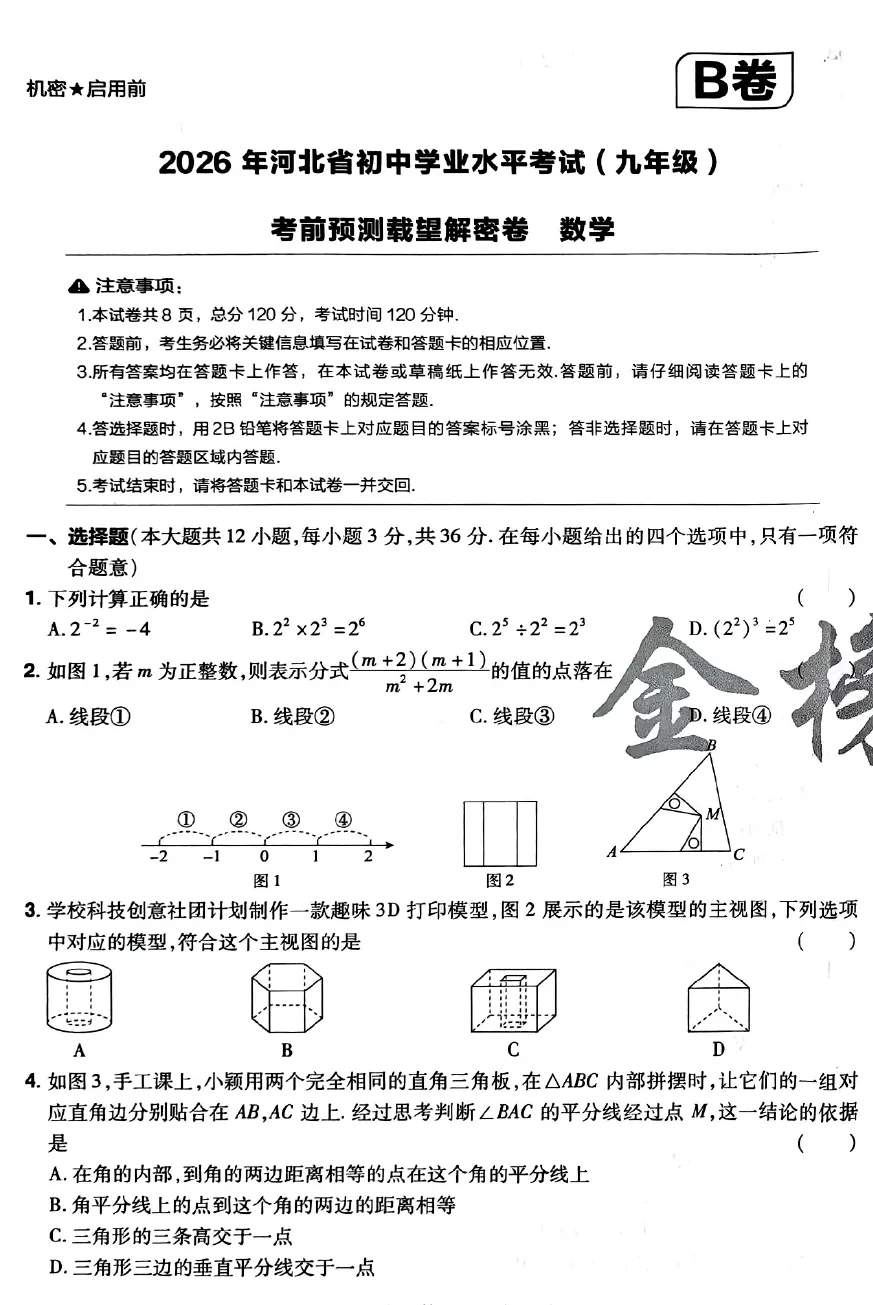 机密★启用前
B卷
2026 年河北省初中学业水平考试(九年级)
考前预测载望解密卷 数学
注意事项:
1.本试卷共8 页,总分120 分,考试时间120 分钟.
2.答题前,考生务必将关键信息填写在试卷和答题卡的相应位置.
3.所有答案均在答题卡上作答,在本试卷或草稿纸上作答无效.答题前,请仔细阅读答题卡上的
“注意事项”,按照“注意事项”的规定答题.
4.答选择题时,用2B 铅笔将答题卡上对应题目的答案标号涂黑;答非选择题时,请在答题卡上对
应题目的答题区域内答题.
5.考试结束时,请将答题卡和本试卷一并交回.
一、选择题(本大题共 12 小题,每小题 3 分,共 36 分. 在每小题给出的四个选项中,只有一项符
合题意)
1. 下列计算正确的是 ( )
A. 2⁻² = -4 B. 2² × 2³ = 2⁶ C. 2⁵ ÷ 2² = 2³ D. (2²)³ = 2⁵
2. 如图 1,若 m 为正整数,则表示分式 (m+2)(m+1)/(m²+2m) 的值的点落在 ( )
A. 线段① B. 线段② C. 线段③ D. 线段④
金榜
① ② ③ ④
-2 -1 0 1 2
图 1
图 2
B
M
A C
图 3
3. 学校科技创意社团计划制作一款趣味 3D 打印模型,图 2 展示的是该模型的主视图,下列选项
中对应的模型,符合这个主视图的是 ( )
A B C D
4. 如图 3,手工课上,小颖用两个完全相同的直角三角板,在△ABC 内部拼摆时,让它们的一组对
应直角边分别贴合在 AB,AC 边上. 经过思考判断∠BAC 的平分线经过点 M,这一结论的依据
是 ( )
A. 在角的内部,到角的两边距离相等的点在这个角的平分线上
B. 角平分线上的点到这个角的两边的距离相等
C. 三角形的三条高交于一点
D. 三角形三边的垂直平分线交于一点